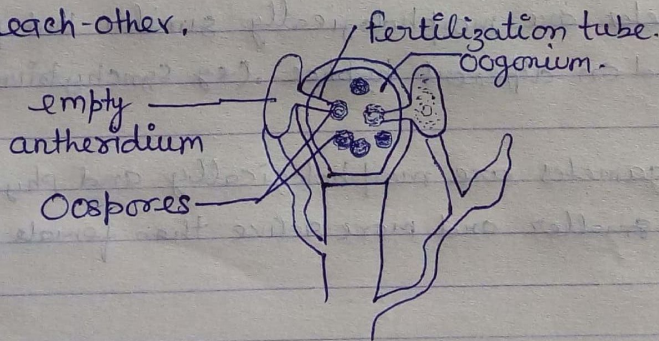 each-other.
fertilization tube.
oogonium.
empty
antheridium
Oospores